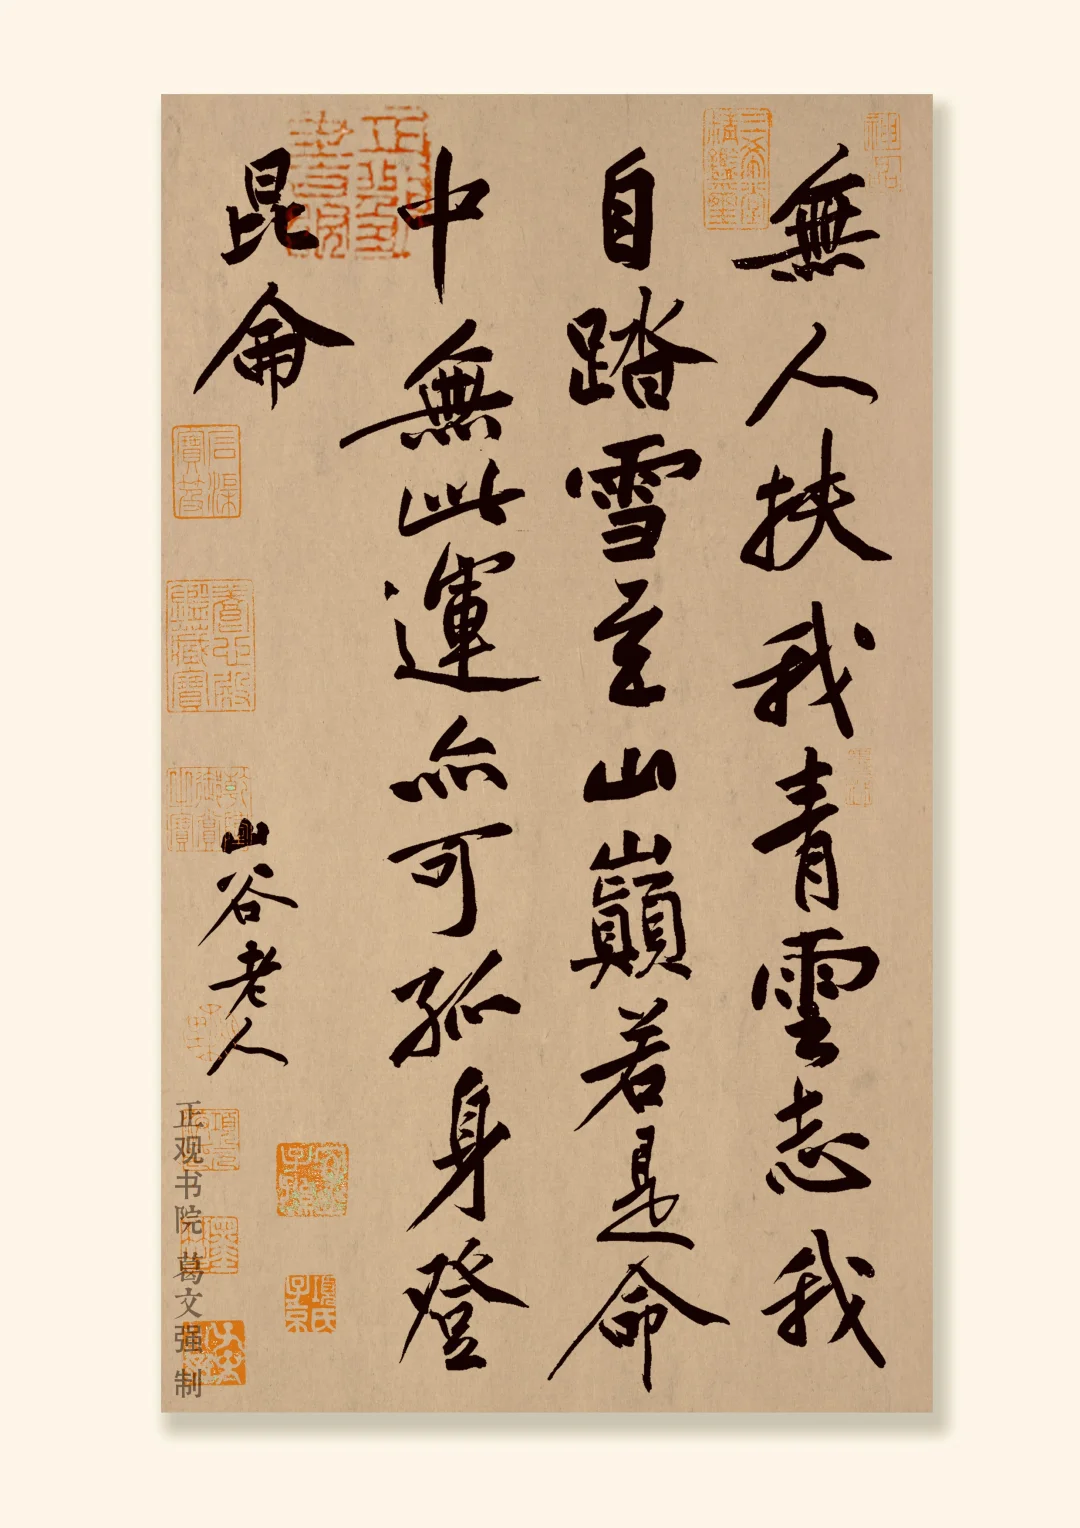 無人扶我青雲志我
自踏雪至山巔若是命
中無此運亦可孤身登
昆侖
山谷老人
正观书院 葛文强 制